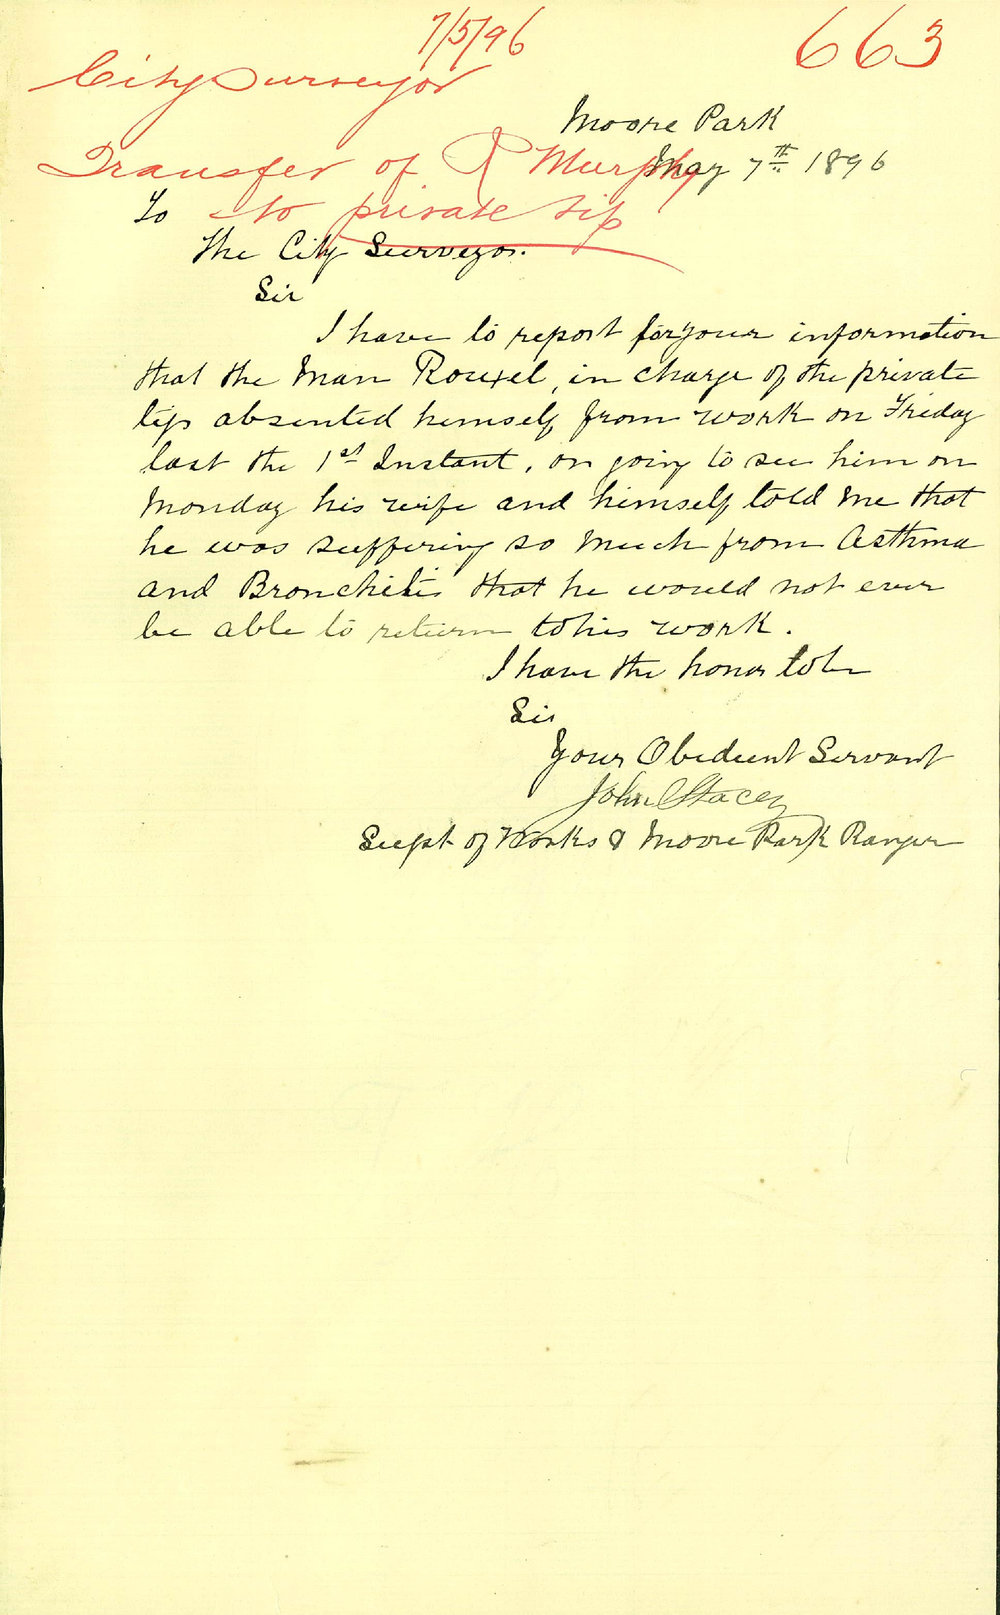 7/5/96
663
City Surveyor
Moore Park
Transfer of R Murphy
May 7th 1896
to private tip
To
The City Surveyor.
Sir
I have to report for your information
that the man Rouxel, in charge of the private
tip absented himself from work on Friday
last the 1st Instant, on going to see him on
Monday his wife and himself told me that
he was suffering so much from Asthma
and Bronchitis that he would not ever
be able to return to his work.
I have the honor to be
Sir
Your Obedient Servant
John Stacey
Supt of Works & Moore Park Ranger